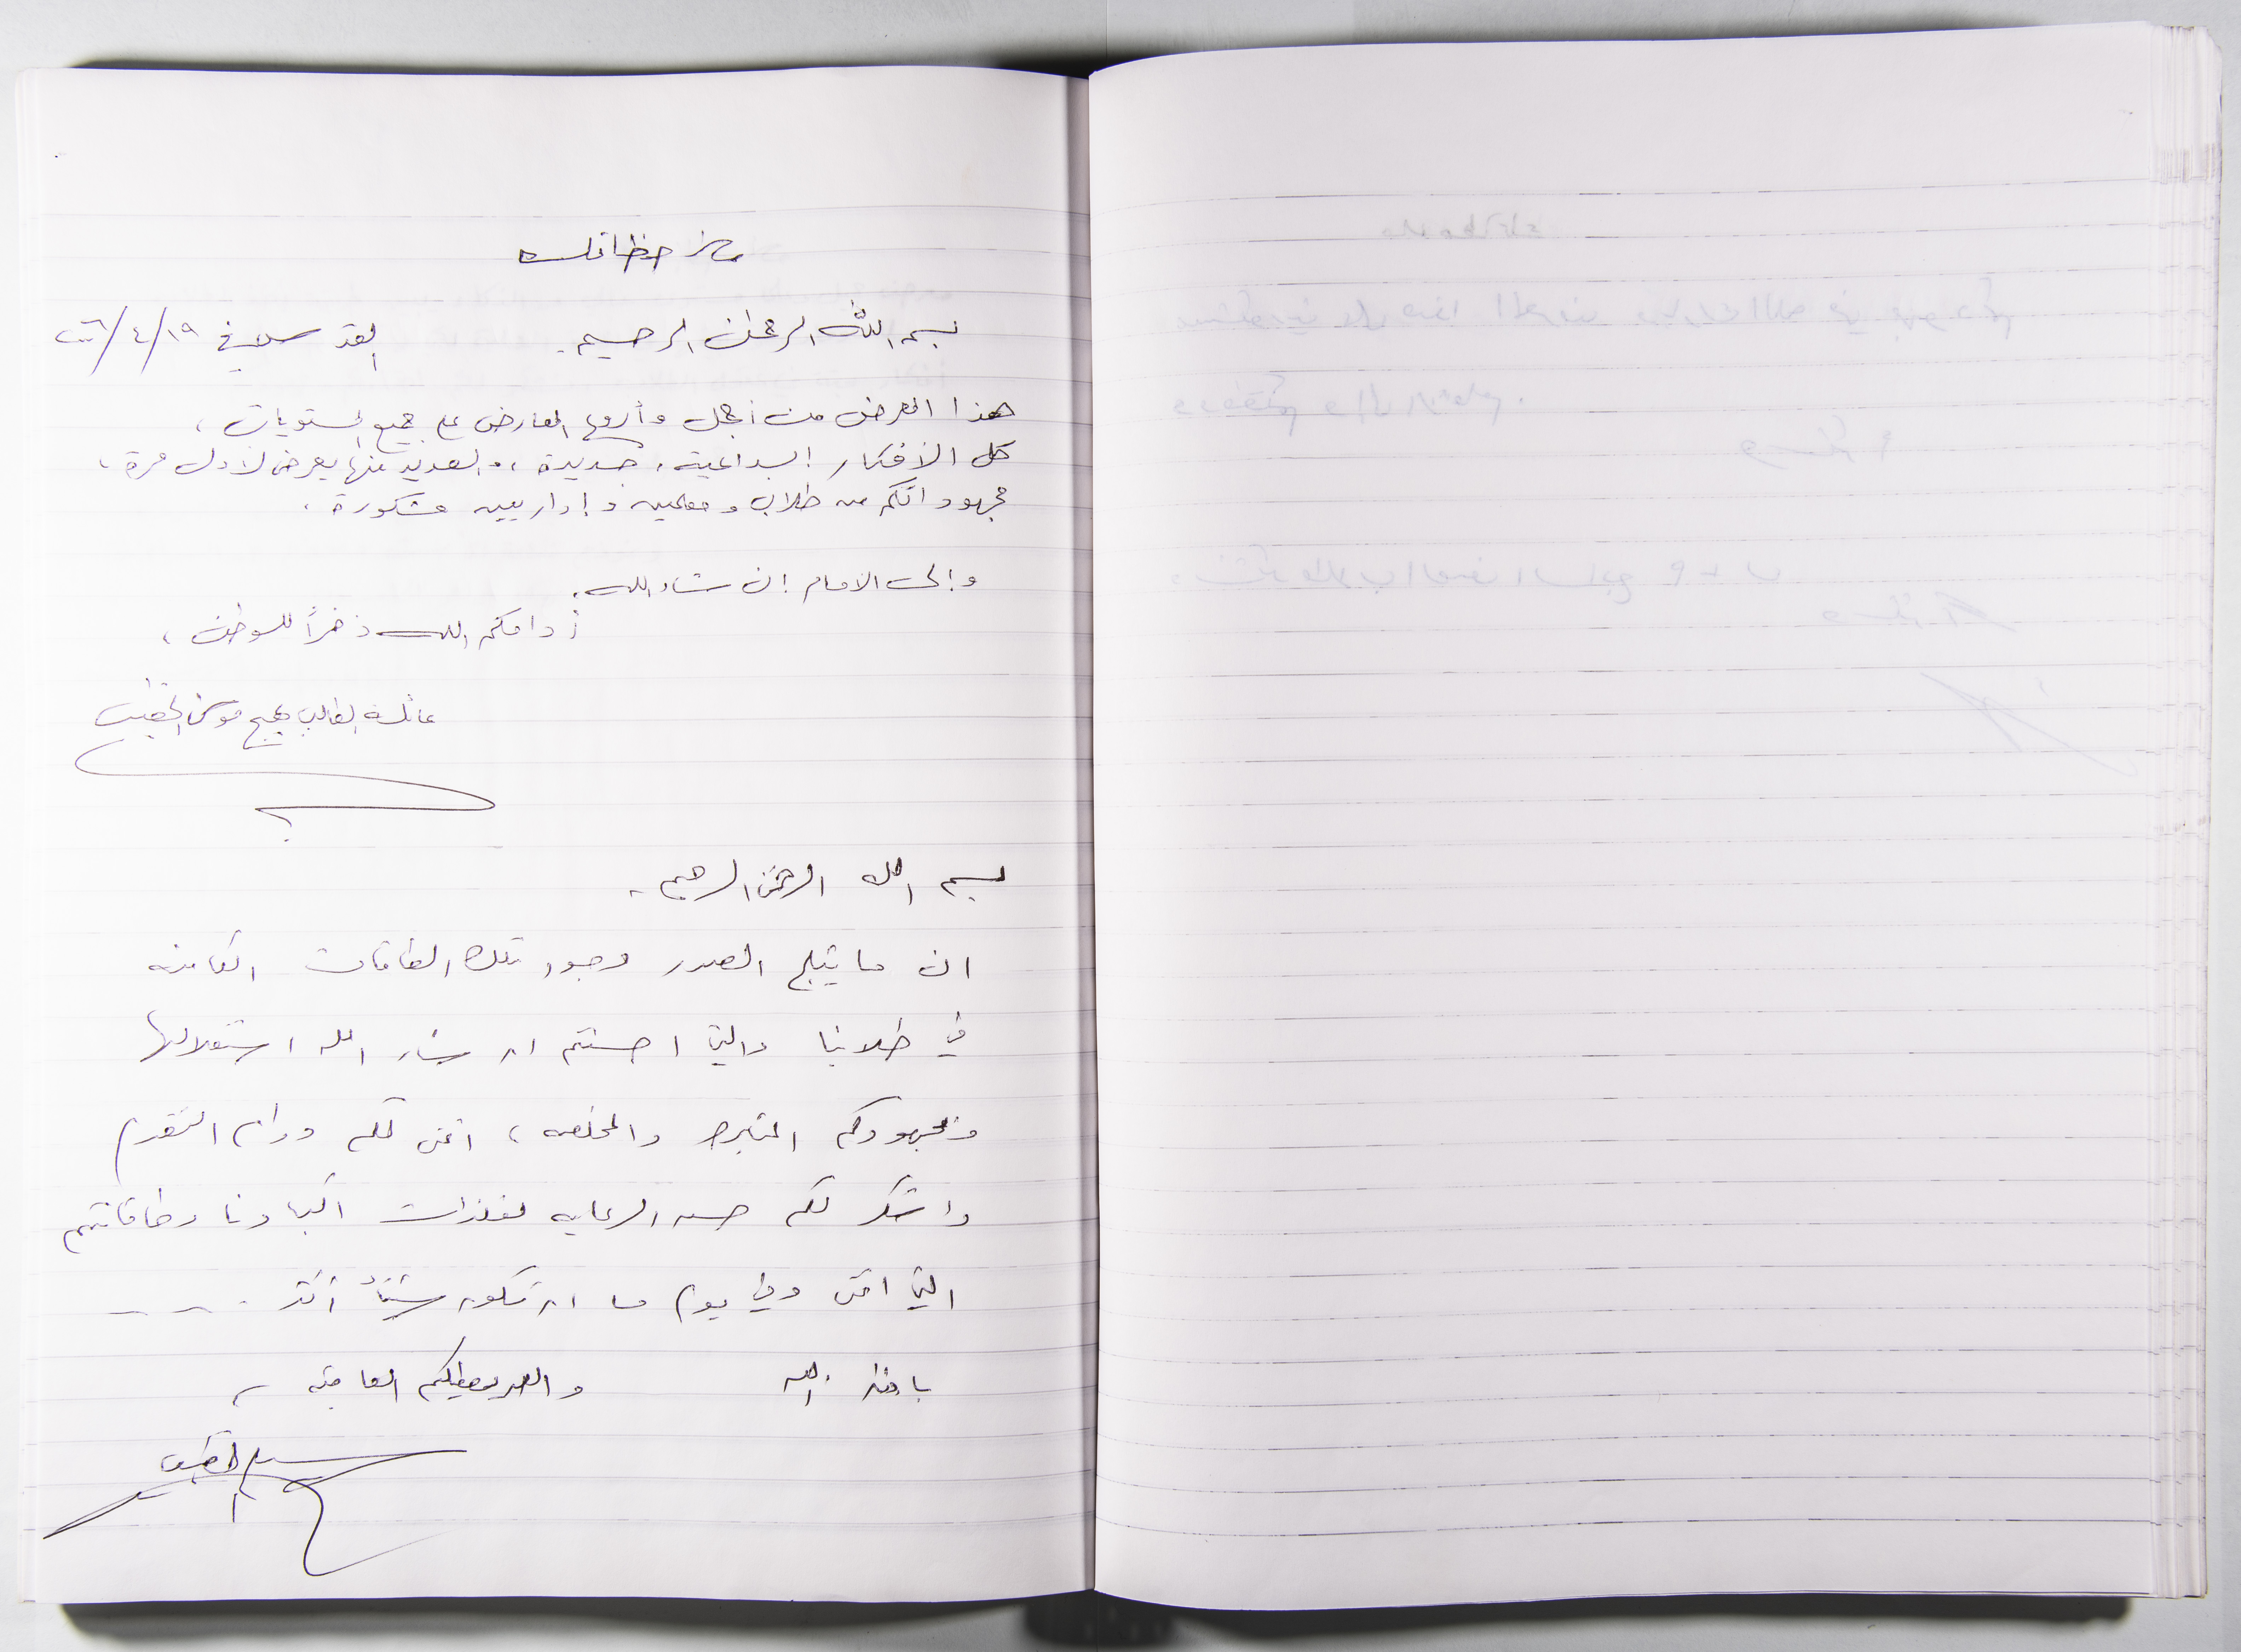 بسم الله الرحمن الرحيم. القدس في ١٩/٤/٢٠٠٦
هذا المعرض من أجمل وأروع المعارض على جميع المستويات،
كل الأفكار إبداعية، جديدة، والعديد منها يعرض لأول مرة،
مجهوداتكم من طلاب ومعلمين وإداريين مشكورة.
وإلى الأمام إن شاء الله.
أدامكم الله ذخراً للوطن،
عائلة الطالب بهيج موسى الخطيب
بسم الله الرحمن الرحيم.
ان ما يثلج الصدر وجود تلك الطاقات الكامنه
في طلابنا والتي احسنتم ان شاء الله استغلالها
ومجهودكم المتميز والمخلصه، اتمنى لكم دوام التقدم
واشكر لكم حسن الرعايه لفلذات اكبادنا وطاقاتهم
التي اتمنى وفي يوم ما ان تكون شيئاً أكثر .....
باذن الله والله يعطيكم العافيه
الخطيب